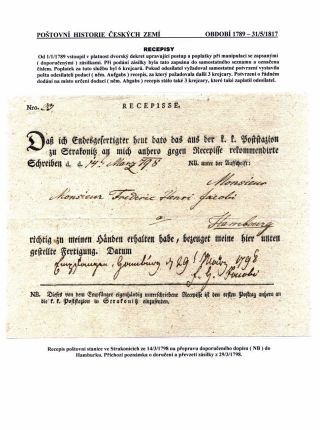 POŠTOVNÍ HISTORIE ČESKÝCH ZEMÍ OBDOBÍ 1789 – 31/5/1817
RECEPISY
Od 1/1/1789 vstoupil v platnost dvorský dekret upravující postup a poplatky při manipulaci se zapsanými
( doporučenými ) zásilkami. Při podání zásilky byla tato zapsána do samostatného seznamu a označena
číslem. Poplatek za tuto službu byl 6 krejcarů. Pokud odesílatel vyžadoval samostatné potvrzení vystavila
pošta odesílateli podací ( něm. Aufgabs ) recepis, za který požadovala další 3 krejcary. Potvrzení o řádném
dodání na místo určení zpáteční ( něm. Abgabs ) recepis stálo také 3 krejcary, které takto zaplatil odesílatel.
Nro. RECEPISSE.
Daß ich Endesgefertigter heut dato das aus der k. k. Poststazion
zu Strakonitz an mich anhero gegen Recepisse rekommendirte
Schreiben d. d. 14. März 798 NB. unter der Aufschrift:
Monsieur
Monsieur Frederic Henri Jacobi
à
Hambourg
richtig zu meinen Händen erhalten habe, bezeuget meine hier unten
gestellte Fertigung. Datum
Empfangen, Hamburg d 29 März 1798
Jacobi
NB. Dieses von dem Empfänger eigenhändig unterschriebene Recepisse ist den ersten Posttag anhero an
die k. k. Poststazion in Strakonitz einzusenden.
Recepis poštovní stanice ve Strakonicích ze 14/3/1798 na přepravu doporučeného dopisu ( NB ) do
Hamburku. Příchozí poznámka o doručení a převzetí zásilky z 29/3/1798.